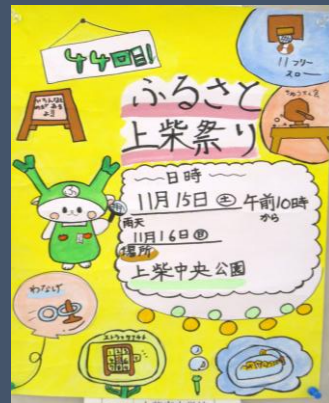 44回目!
ふるさと
上柴祭り
フリー
スロー
日時
11月15日(土)午前10時
から
雨天
11月16日(日)
場所
上柴中央公園
わなげ
ストラックアウト